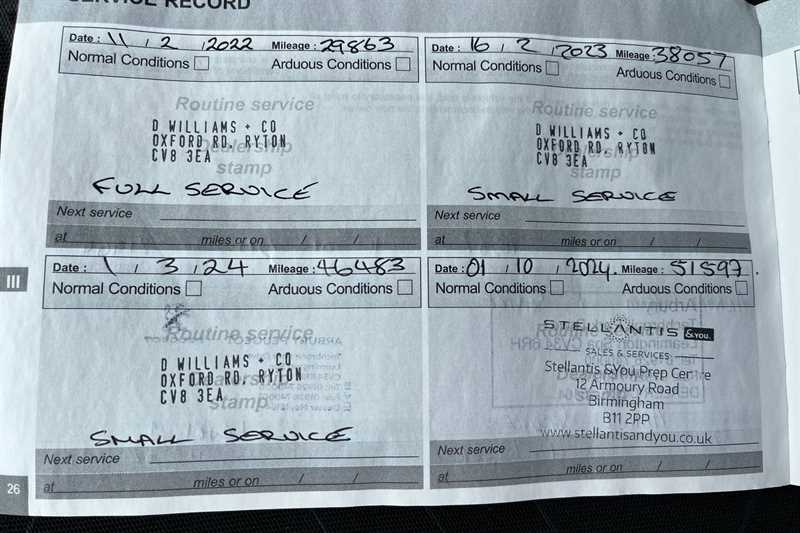 SERVICE RECORD
Date : 11 / 2 / 2022 Mileage : 29863
Normal Conditions Arduous Conditions
Routine service
Dealership
stamp
D WILLIAMS + CO
OXFORD RD, RYTON
CV8 3EA
FULL SERVICE
Next service
at miles or on / /
Date : 16 / 2 / 2023 Mileage : 38057
Normal Conditions Arduous Conditions
Routine service
Dealership
stamp
D WILLIAMS + CO
OXFORD RD, RYTON
CV8 3EA
SMALL SERVICE
Next service
at miles or on / /
III
Date : 1 / 3 / 24 Mileage : 46483
Normal Conditions Arduous Conditions
Routine service
Dealership
stamp
D WILLIAMS + CO
OXFORD RD, RYTON
CV8 3EA
SMALL SERVICE
Next service
at miles or on / /
Date : 01 / 10 / 2024. Mileage : 51597.
Normal Conditions Arduous Conditions
STELLANTIS &YOU.
SALES & SERVICES
Stellantis &You Prep Centre
12 Armoury Road
Birmingham
B11 2PP
www.stellantisandyou.co.uk
Next service
at miles or on / /
26